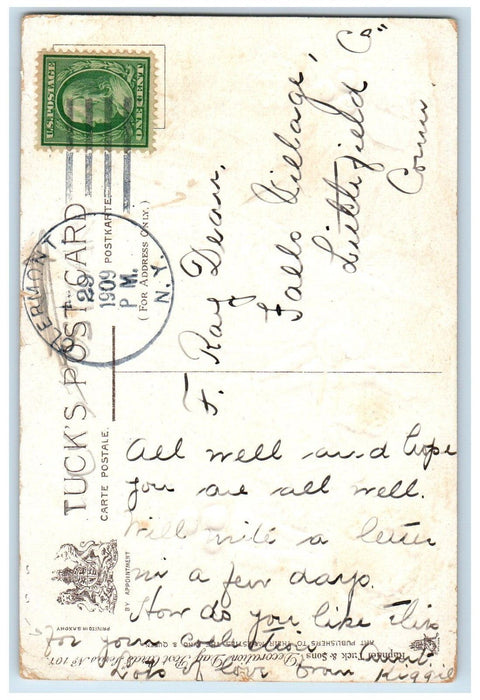 U.S. POSTAGE
ONE CENT
CLERMONT
29
1909
P M.
N.Y.
TUCK'S POST CARD
CARTE POSTALE.
POSTKARTE
(FOR ADDRESS ONLY.)
BY APPOINTMENT
PRINTED IN SAXONY
F. Ray Dean,
Falls Village,
Litchfield Co"
Conn.
All well and hope
you are all well.
Will write a letter
in a few days.
How do you like this
for your collection
Lots of love from
Raphael Tuck & Sons' "Decoration Day" Post Cards Series No 107
ART PUBLISHERS TO THEIR MAJESTIES THE KING & QUEEN